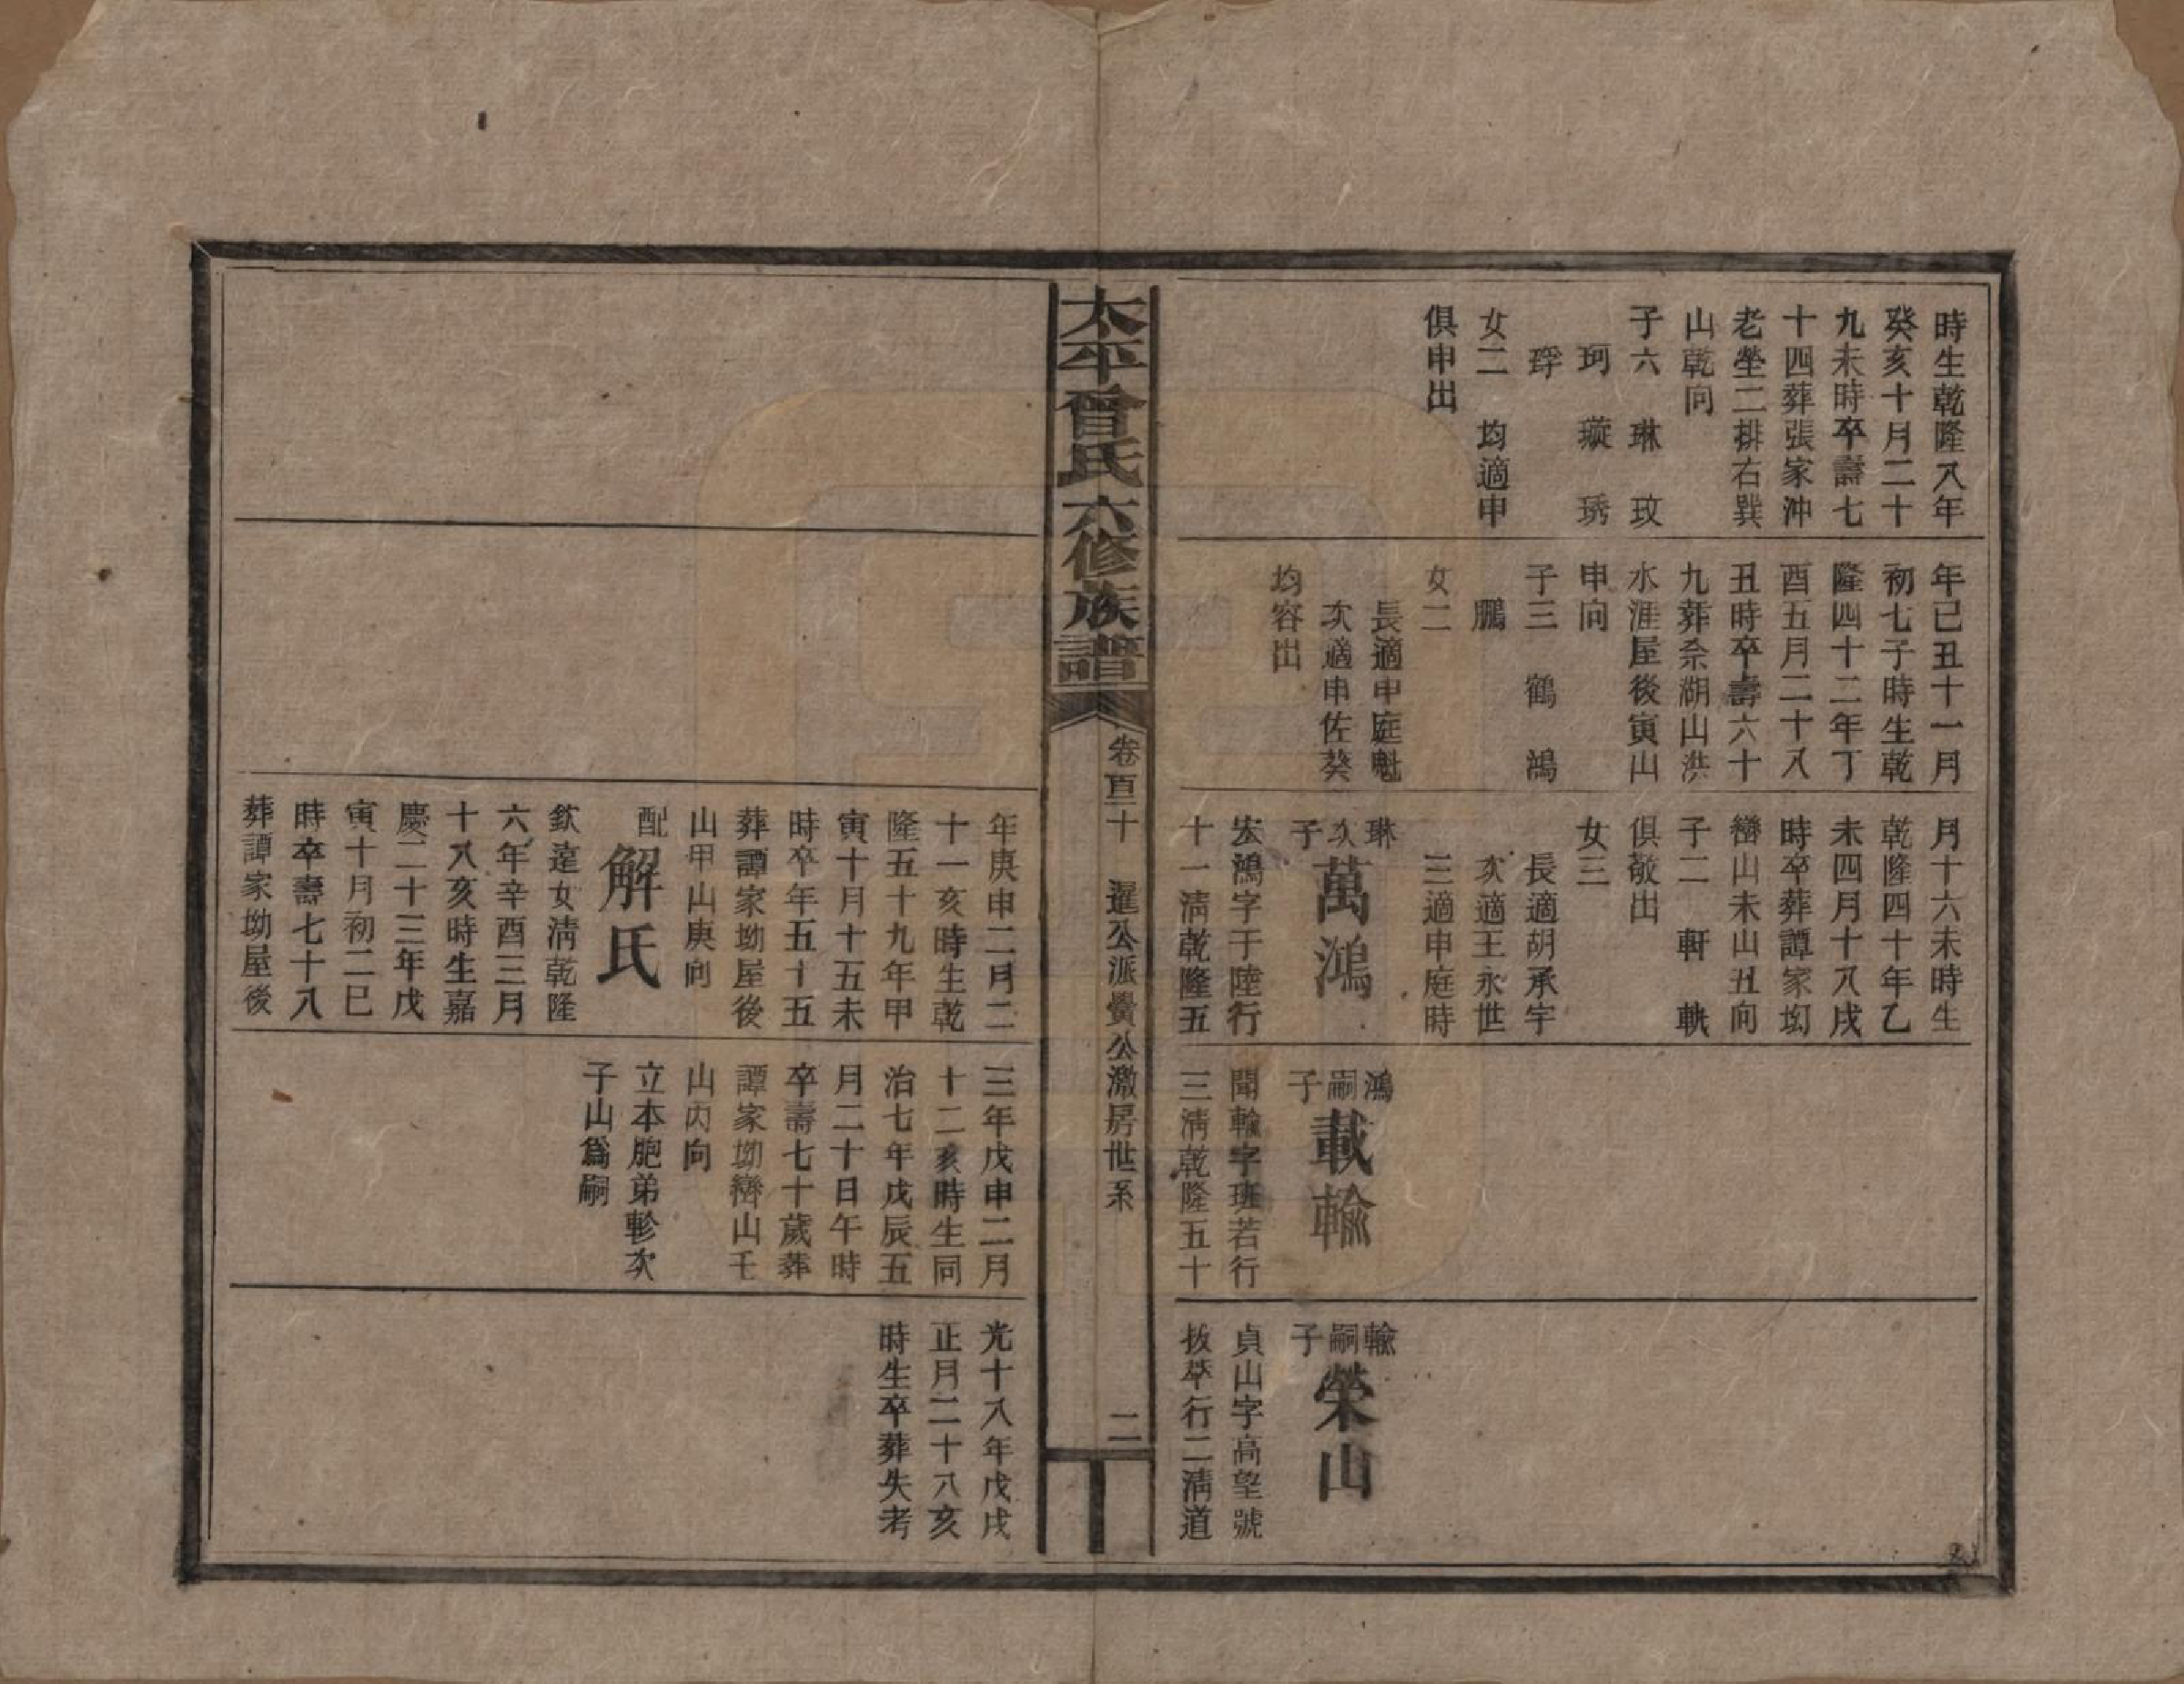 時生乾隆八年
癸亥十月二十
九未時卒壽七
十四葬張家沖
老塋二排右巽
山乾向
子六　琳　玟
珂　璇　琇
琈
女二　均適申
俱申出
年己丑十一月
初七子時生乾
隆四十二年丁
酉五月二十八
丑時卒壽六十
九葬余湖山洪
水涯屋後寅山
申向
子三　鶴　鴻
鵬
女二
長適申庭魁
次適申佐葵
均容出
月十六未時生
乾隆四十年乙
未四月十八戌
時卒葬譚家㘭
山未山丑向
子二　軒　軼
俱敬出
女三
長適胡承宇
次適王永世
三適申庭時
琳次子
萬鴻
宏鴻字于陸行
十一清乾隆五
鴻嗣子
載輸
聞輸字班若行
三清乾隆五十
輸嗣子
榮山
貞山字高望號
拔萃行二清道
太平曾氏六修族譜
卷百二十　暹公派釁公激房世系
二
年庚申二月二
十一亥時生乾
隆五十九年甲
寅十月十五未
時卒年五十五
葬譚家坳屋後
山甲山庚向
配
解氏
欽逵女清乾隆
六年辛酉三月
十八亥時生嘉
慶二十三年戊
寅十月初二巳
時卒壽七十八
葬譚家坳屋後
三年戊申二月
十二亥時生同
治七年戊辰五
月二十日午時
卒壽七十歲葬
譚家坳山壬
山丙向
立本胞弟軫次
子山爲嗣
光十八年戊戌
正月二十八亥
時生卒葬失考